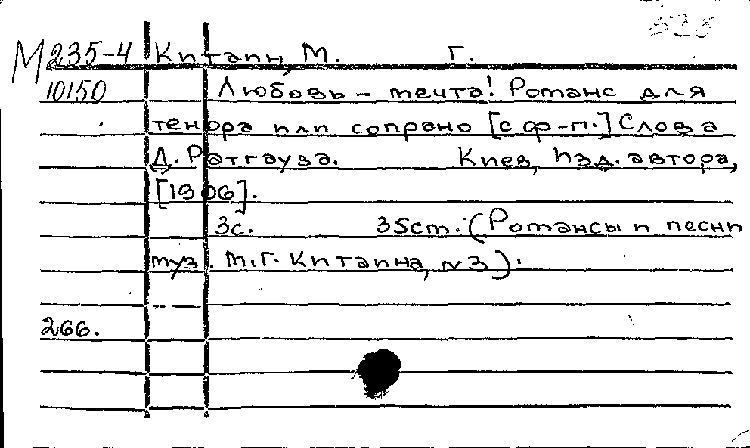 М 235-4 Китаин, М. Г.
10150 Любовь – мечта! Романс для
тенора или сопрано [с ф-п.] Слова
Д. Ратгауза. Киев, Изд. автора,
[1906].
3с. 35см. (Романсы и песни
муз. М.Г. Китаина, №3).
266.